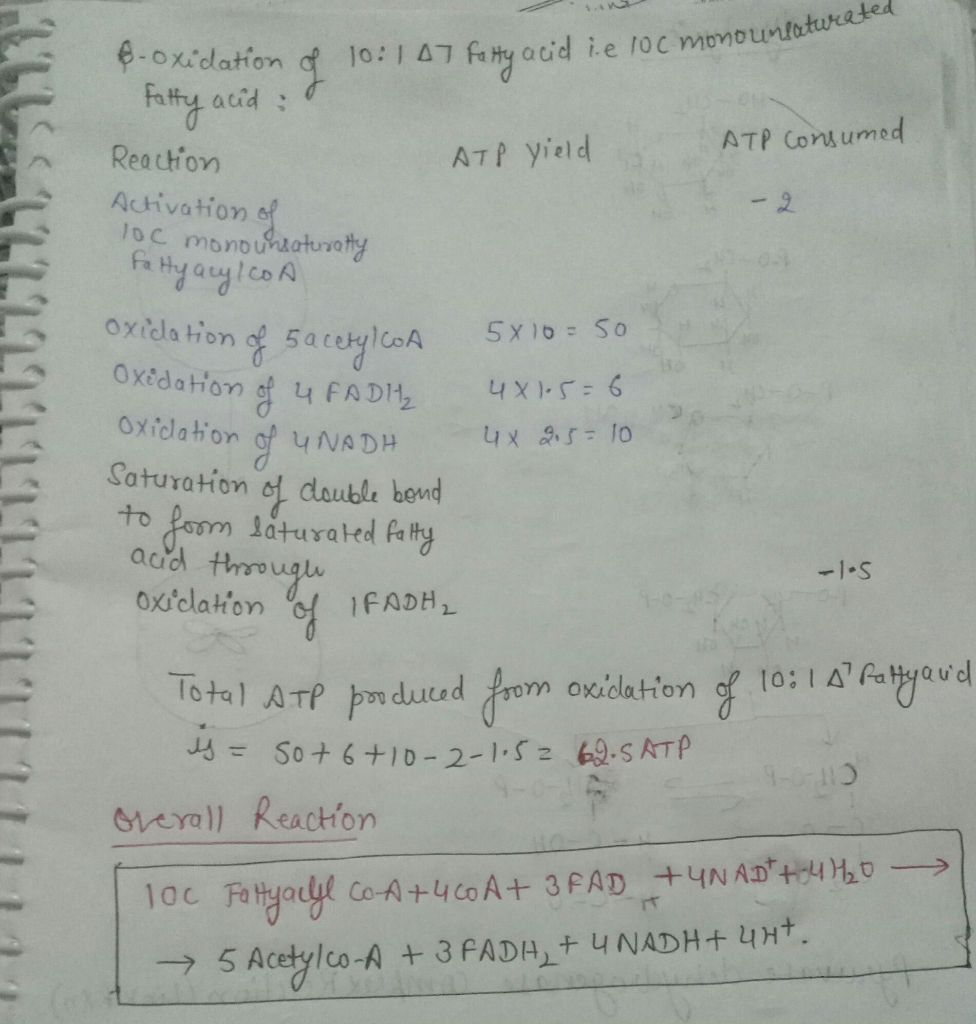 β-oxidation of 10:1 Δ7 fatty acid i.e 10C monounsaturated
fatty acid :
Reaction ATP yield ATP Consumed
Activation of - 2
10C monounsaturatty
fattyacylcoA
Oxidation of 5acetylcoA 5X10 = 50
Oxidation of 4 FADH₂ 4X1.5 = 6
Oxidation of 4NADH 4x 2.5 = 10
Saturation of double bond
to form saturated fatty
acid through -1.5
oxidation of 1FADH₂
Total ATP produced from oxidation of 10:1 Δ⁷ fattyacid
is = 50+6+10-2-1.5 = 62.5 ATP
Overall Reaction
10C Fattyacyl Co-A+4CoA+ 3FAD +4NAD⁺+4H₂O →
→ 5 Acetylco-A + 3FADH₂ + 4NADH+4H⁺.